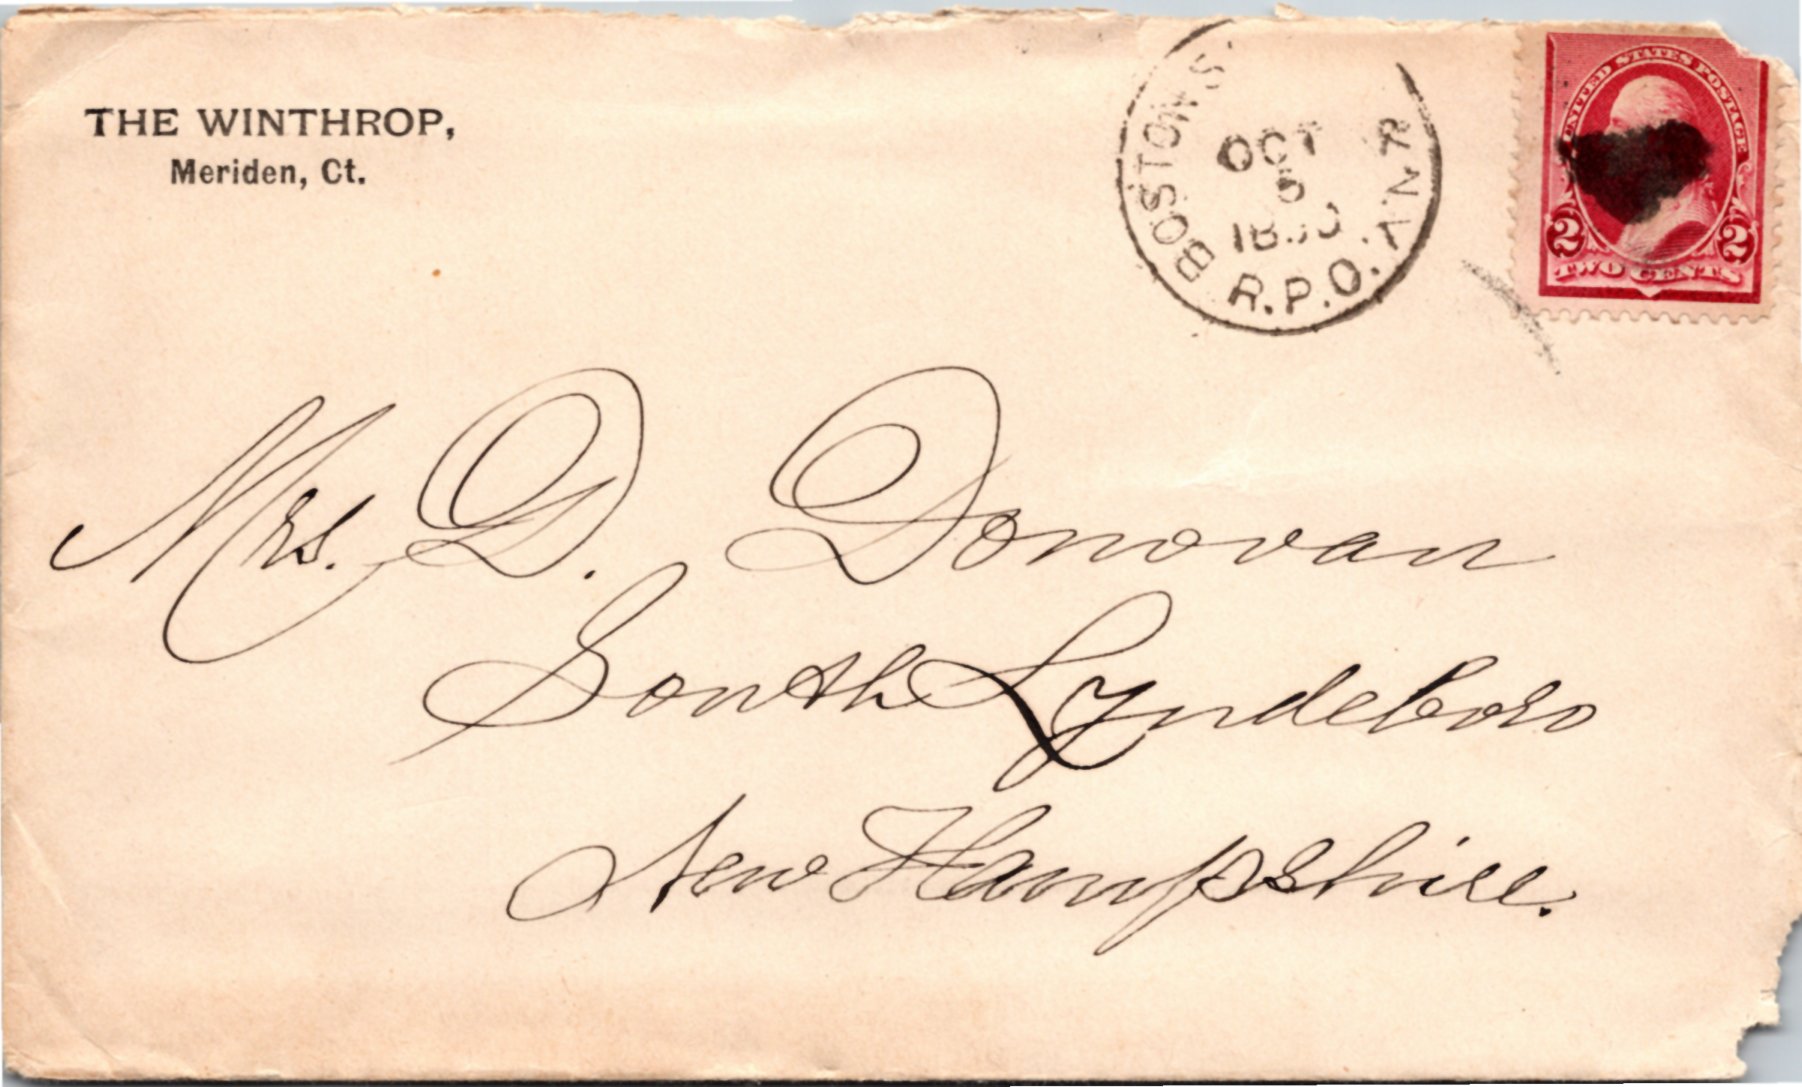 THE WINTHROP,
Meriden, Ct.
BOSTON S
OCT
5
R.P.O.
& N.Y.
UNITED STATES POSTAGE
2 2
TWO CENTS
Mrs. D. Donovan
South Lyndeboro
New Hampshire.